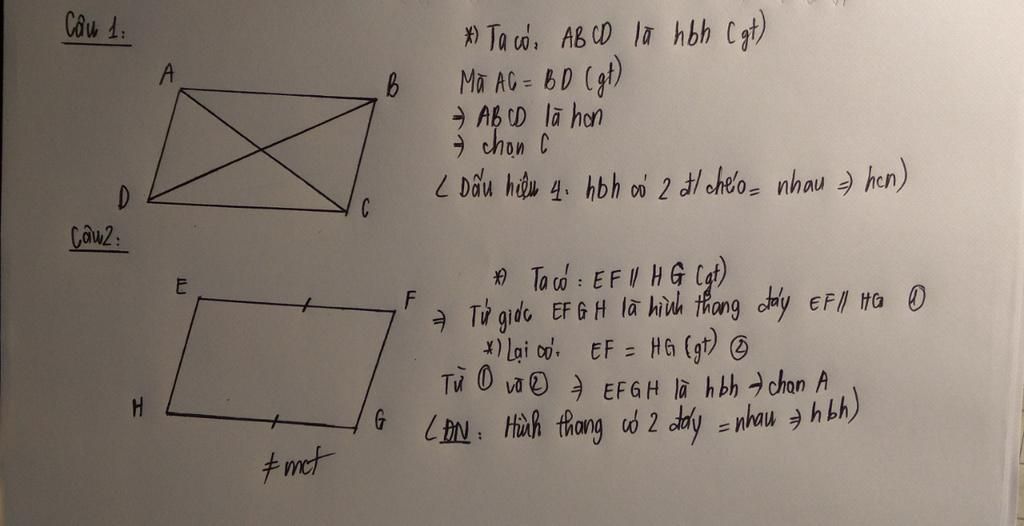 Câu 1:
*) Ta có, ABCD là hbh (gt)
A
B
Mà AC = BD (gt)
⇒ ABCD là hcn
⇒ chọn C
D
C
( Dấu hiệu 4. hbh có 2 đ/chéo = nhau ⇒ hcn)
Câu 2:
*) Ta có : EF // HG (gt)
E
F
⇒ Tứ giác EFGH là hình thang đáy EF // HG ①
*) Lại có. EF = HG (gt) ②
Từ ① và ② ⇒ EFGH là hbh → chọn A
H
G
(ĐN: Hình thang có 2 đáy = nhau ⇒ hbh)
≠mct